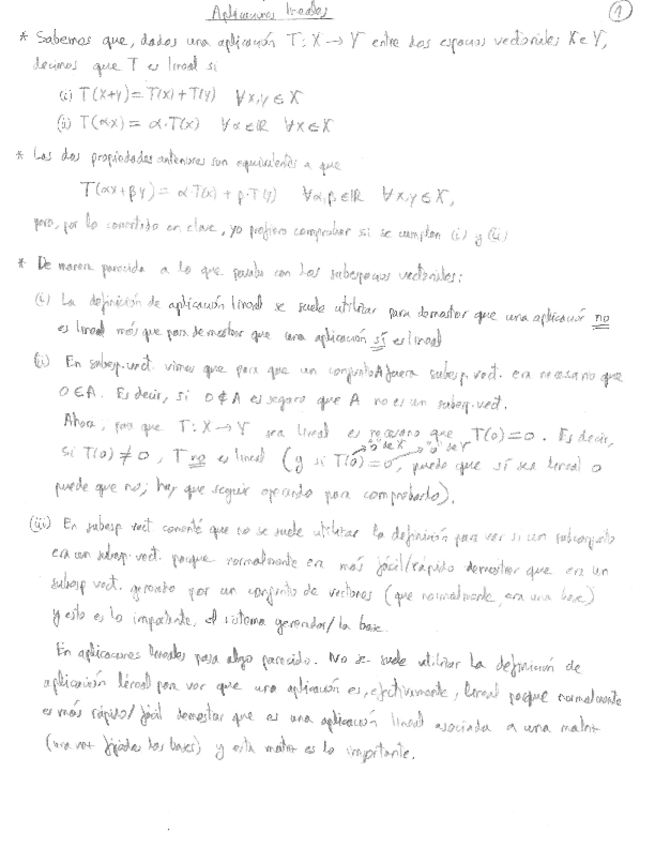 Aplicaciones lineales
1
* Sabemos que, dados una aplicación T: X → Y entre dos espacios vectoriales X e Y,
decimos que T es lineal si
(i) T(x+y) = T(x) + T(y) ∀x,y ∈ X
(ii) T(αx) = α·T(x) ∀α∈ℝ ∀x∈X
* Las dos propiedades anteriores son equivalentes a que
T(αx+βy) = α·T(x) + β·T(y) ∀α,β∈ℝ ∀x,y∈X,
pero, por lo comentado en clase, yo prefiero comprobar si se cumplen (i) y (ii)
* De manera parecida a lo que pasaba con los subespacios vectoriales:
(i) La definición de aplicación lineal se suele utilizar para demostrar que una aplicación no
es lineal más que para demostrar que una aplicación sí es lineal
(ii) En subesp. vect. vimos que para que un conjunto A fuera subesp. vect. era necesario que
0∈A. Es decir, si 0∉A es seguro que A no es un subesp. vect.
Ahora, para que T: X → Y sea lineal es necesario que T(0)=0. Es decir,
"0" de X "0" de Y
si T(0) ≠ 0, T no es lineal (y si T(0)=0, puede que sí sea lineal o
puede que no; hay que seguir operando para comprobarlo).
(iii) En subesp. vect. comenté que no se suele utilizar la definición para ver si un subconjunto
era un subesp. vect. porque normalmente era más fácil/rápido demostrar que era un
subesp. vect. generado por un conjunto de vectores (que normalmente, era una base)
y esto es lo importante, el sistema generador/la base.
En aplicaciones lineales pasa algo parecido. No se suele utilizar la definición de
aplicación lineal para ver que una aplicación es, efectivamente, lineal porque normalmente
es más rápido/fácil demostrar que es una aplicación lineal asociada a una matriz
(una vez fijadas las bases) y esta matriz es lo importante.